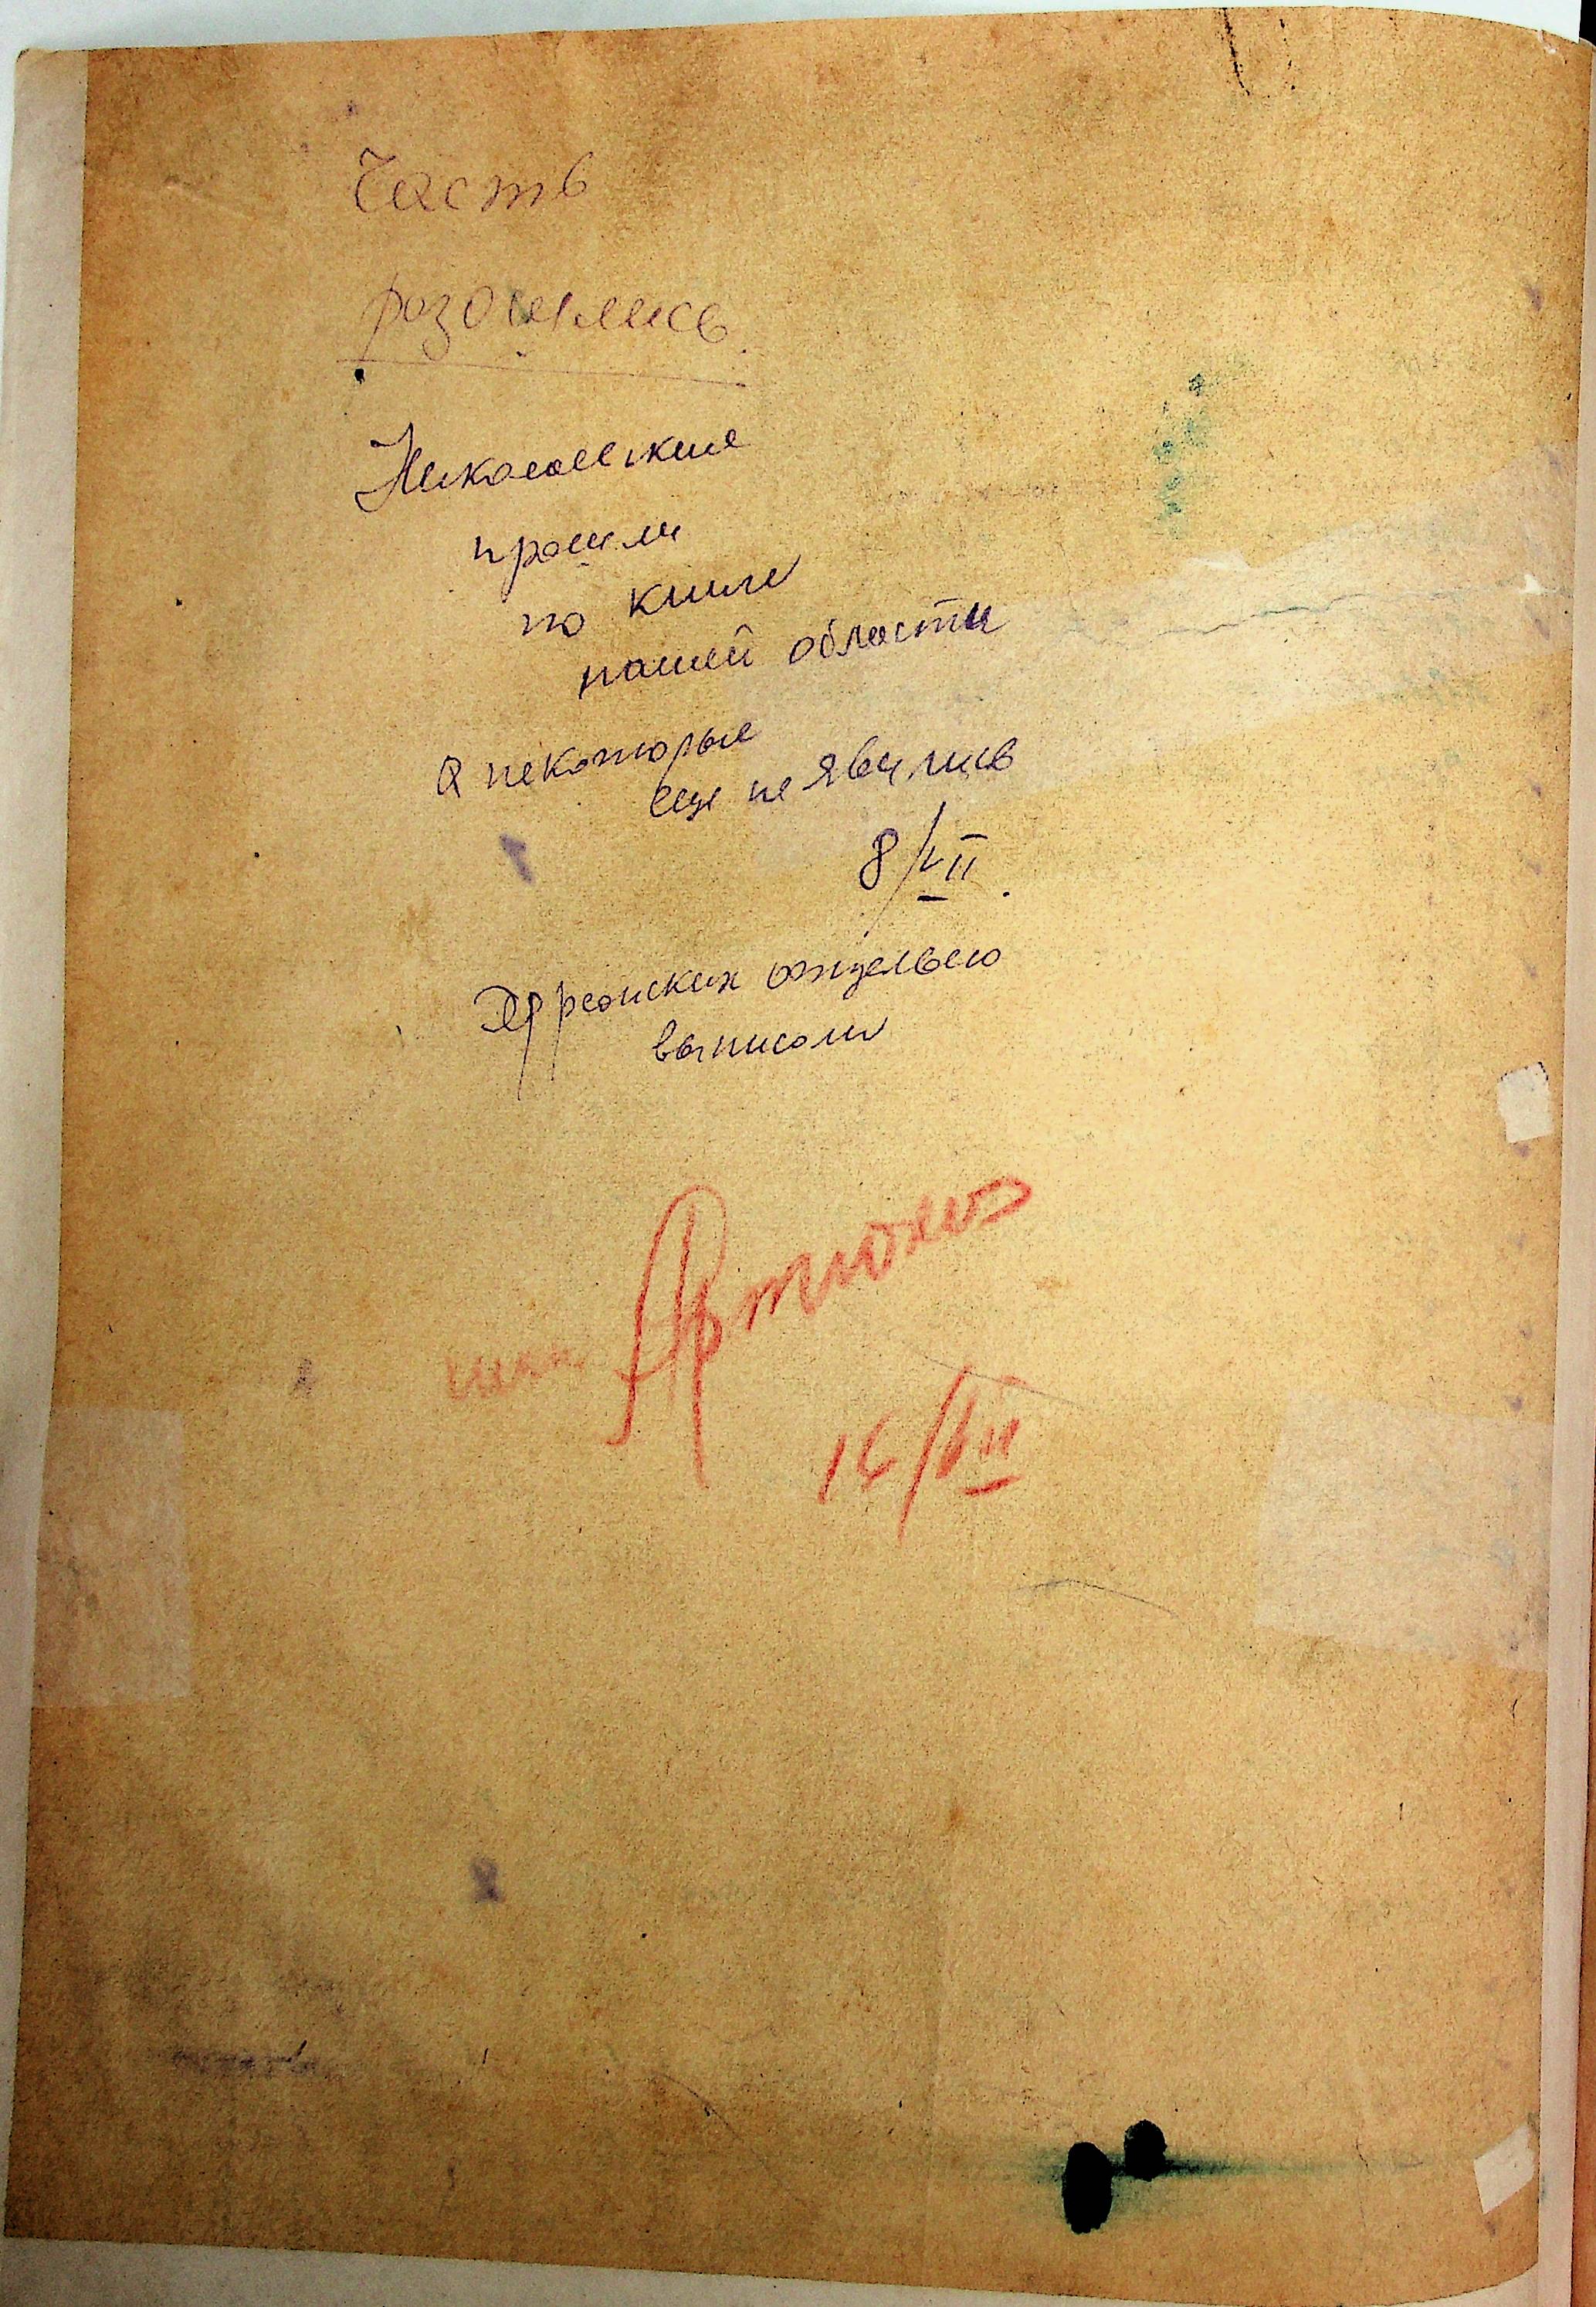 Часть
разошлись
Николаевские
прошли
по книге
нашей области
а некоторые
еще не явились
8/VII
отдельно
выписали
Артюхов
16/VII